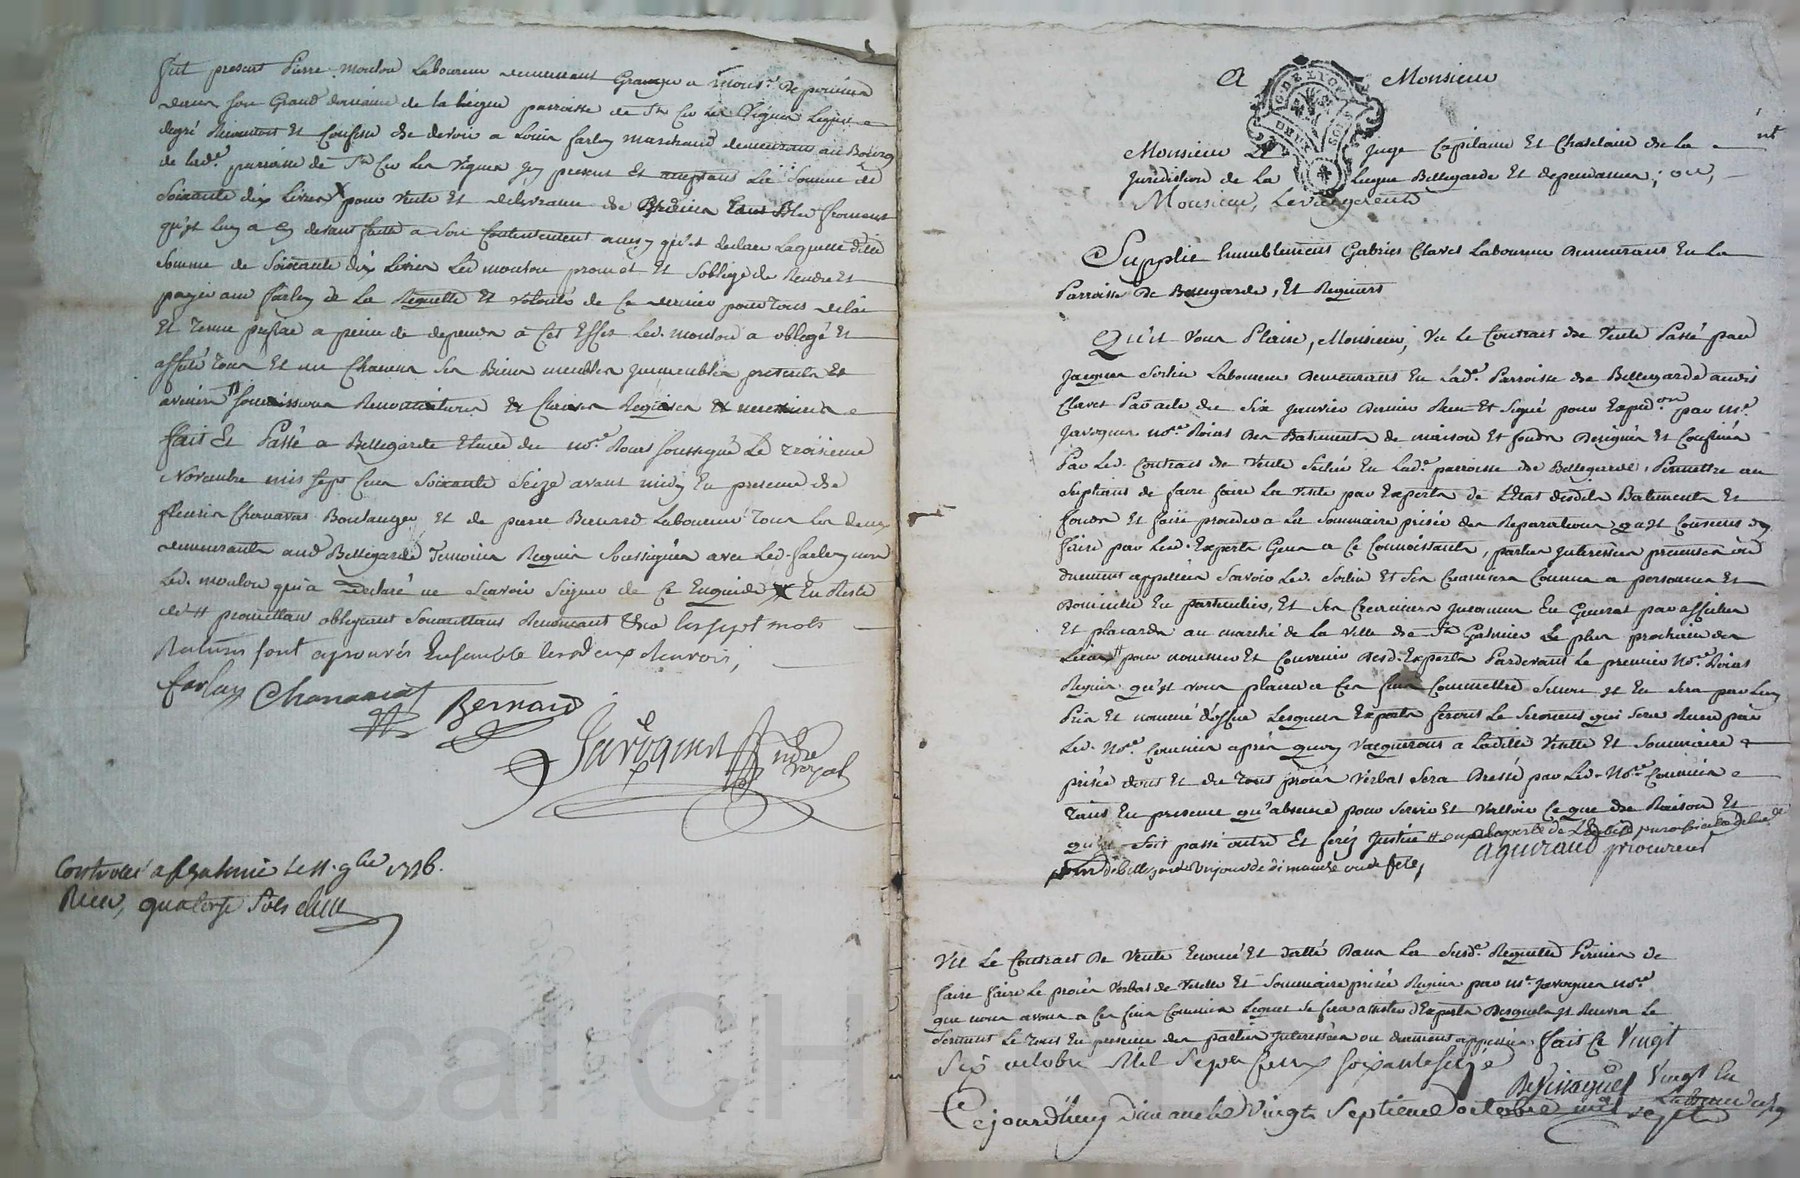 fut present Pierre moulou Laboureur demeurant Granger a Mons.r De
dans son Grand domaine de la liegue parroisse de St Cir les Vignes Lequel
degré Reconnoit Et Confesse de devoir a Louis farlay marchand demeurant au Bourg
de lad.e parroisse de St Cir les Vignes Icy present Et acceptant La Somme de
Soixante dix Livres pour Vente Et delivrance de Bled froment
qu'il Luy a Cy devant faitte a son Contentement ainsy qu'il declare Laquelle ditte
somme de Soixante dix Livres Led moulou promet Et s'oblige de Rendre Et
payer aud farlay de La Requette Et volonté de Ce dernier pour tous delai
Et terme prefixe a peine de depens a Cet Effet Led. moulou a obligé Et
affecté tous Et un Chacun Ses Biens meubles Immeubles presents Et
avenirs soumissions Renonciations Et Clauses Requises Et necessaires
fait Et Passé a Bellegarde Etude du no.re Royal soussigné Le troisieme
Novembre mil sept Cent Soixante Seize avant midy En presence de
Chanavat Boulanger, Et de pierre Bernard Laboureur tous les deux
demeurants aud Bellegarde Temoins Requis Soussignés avec Led. farlay non
Led. moulou qui a Declaré ne Scavoir Signer de Ce Enquis En Reste
promettant obligeant Soumettant Renonceant les sept mots
Raturés sont aprouvés Ensemble les deux Renvois,
farlay Chanavat Bernard
Javogues no.re royal
Controllé a St Galmier le 11. 9bre 1776.
Reçu, quatorze sols
A Monsieur
G. DE LYON
Monsieur Le Juge Capitaine Et Chatelain de La
Juridiction de La Liegue Bellegarde Et dependances; ou,
Monsieur, Le vice gerent
Supplie humblement Gabriel Claret Laboureur Demeurant En La
Parroisse De Bellegarde, Et Requiert
Qu'il Vous Plaise, Monsieur, Vu Le Contrat de Vente Passé par
Jacques Sorlin Laboureur Demeurant En Lad.e Parroisse de Bellegarde audit
Claret Par acte du Six Janvier Dernier Reçu Et Signé pour Exped.on par m.e
Javogues no.re Roial Des Batiments de maison Et fonds Designés Et Confinés
Par Led. Contrat de Vente Situés En Lad.e parroisse de Bellegarde, Permettre au
Supliant de faire faire La visite par Experts de L'Etat desdits Batiments Et
fonds Et faire proceder a La Sommaire prisée des Reparations qu'il Convient d'y
faire par Led. Experts Gens a Ce Connoissants, parties Interessées presentes ou
duement appellées Scavoir Led. Sorlin Et Ses Creanciers Connus a personnes Et
Domicile En particulier, Et Ses Creanciers Inconnus En General par affiches
Et placards au marché de La Ville de St Galmier Le plus prochain des
Lieux pour nommer Et Convenir Desd. Experts Pardevant Le premier No.re Roial
Requis qu'il vous plaira a Ces fins Commettre Sinon Il En Sera par Luy
Pris Et nommé d'office Lesquels Experts feront Le Serment qui Sera Reçu par
Led. No.re Commis après quoy Vacqueront a Laditte Visitte Et Sommaire
prisée dont Et du Tout procès Verbal Sera Dressé par Led. No.re Commis
Tant En presence qu'absence pour Servir Et Valloir Ce que de Raison Et
qu'il Soit passé outre Et ferez Justice
de Bellegarde un jour de dimanche ou de fete,
aguiraud procureur
Vu Le Contract De Vente Enoncé Et datté Dans La Susd.e Requette Permis de
faire faire Le procès Verbal de Visitte Et Sommaire prisée Requis par m.e Javogues no.re
que nous avons a Ces fins Commis Lequel Se fera assister d'Experts Desquels Il Recevra Le
Serment Le Tout En presence des parties Interessées ou duement appellées fait Ce Vingt
Six octobre Mil Sept Cent Soixante Seize
Cejourdhuy Dimanche Vingt Septieme octobre mil sept